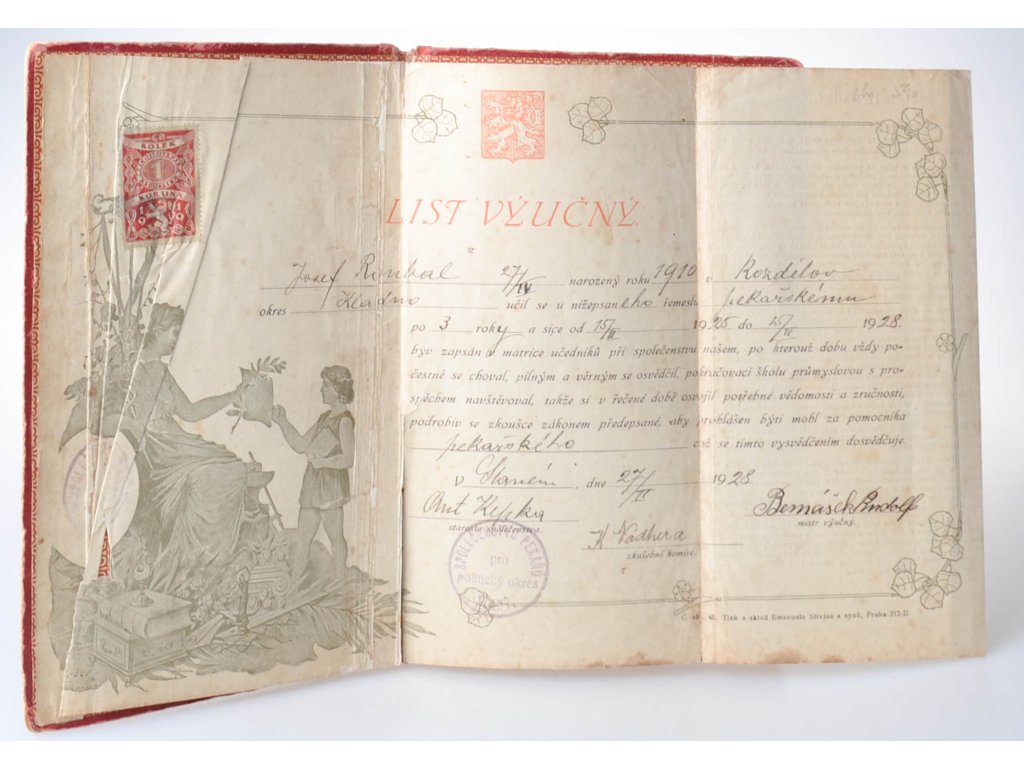 KOLEK
1
KORUNA
19 19
LIST VÝUČNÝ.
Josef 27/IV narozený roku 1910 v Rozdělov
okres Kladno učil se u nížepsaného řemeslu pekařskému
po 3 roky a sice od 15/II 1925 do 15/II 1928.
byv zapsán v matrice učedníků při společenstvu našem, po kterouž dobu vždy po-
čestně se choval, pilným a věrným se osvědčil, pokračovací školu průmyslovou s pro-
spěchem navštěvoval, takže si v řečené době osvojil potřebné vědomosti a zručnosti,
podrobiv se zkoušce zákonem předepsané, aby prohlášen býti mohl za pomocníka
pekařského což se tímto vysvědčením dosvědčuje.
v Slaném, dne 27/II 1928
Ant Kepka Bemášek Rudolf
starosta společenstva. mistr výučný.
Nádhera
zkušební komise.
SPOLEČENSTVO PEKAŘŮ
pro
politický okres
Tisk a sklad Emanuela Stivína a synů, Praha 212-II.